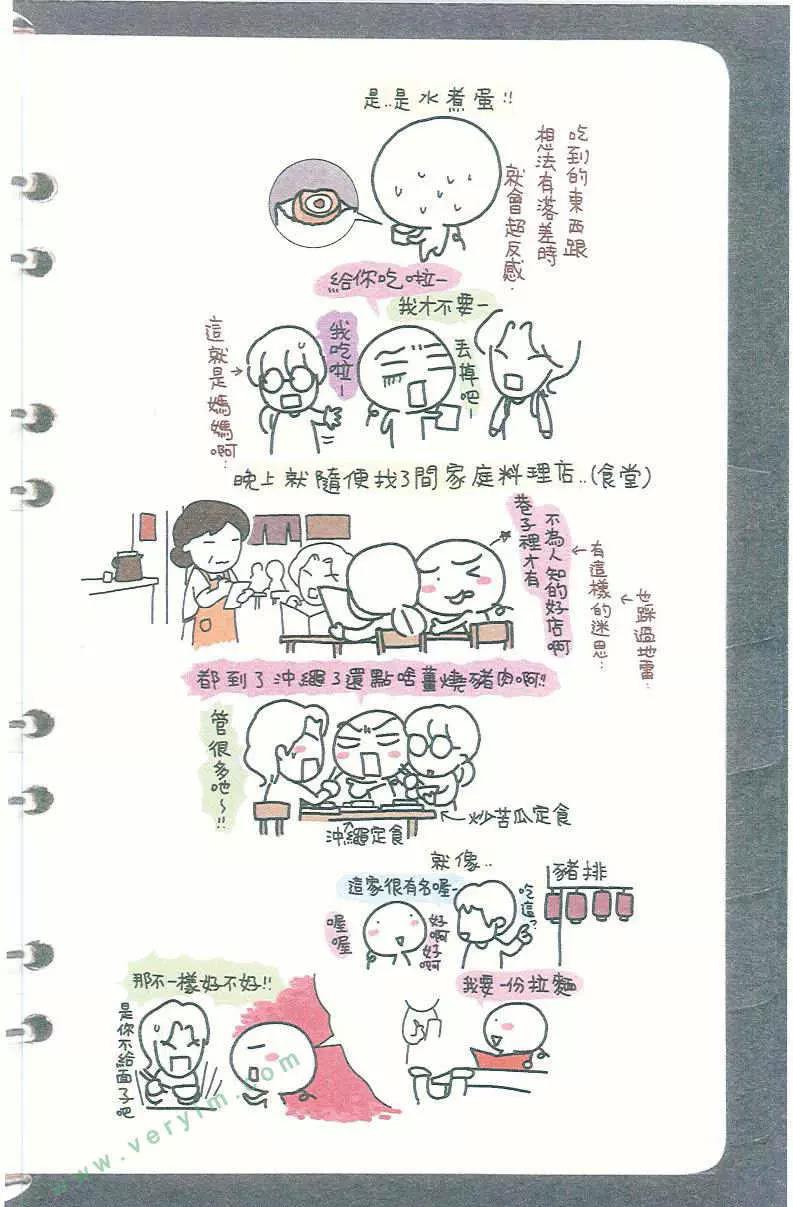 是..是水煮蛋!!
吃到的東西跟
想法有落差時
就會超反感.
給你吃啦—
我才不要—
我吃啦—
丟掉吧—
這就是媽媽啊…
晚上就隨便找了間家庭料理店..(食堂)
不為人知的好店啊
巷子裡才有
有這樣的迷思…
也踩過地雷…
都到了沖繩了還點啥薑燒豬肉啊!!
管很多吔~!!
沖繩定食
炒苦瓜定食
就像..
這家很有名喔—
豬排
吃這?
喔喔
好啊好啊
我要一份拉麵
那不一樣好不好!!
是你不給面子吧
www.veryim.com